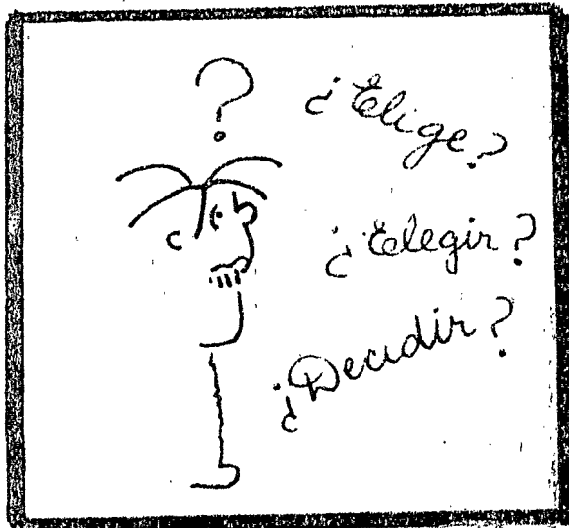 ?
¿Elige?
¿Elegir?
¿Decidir?